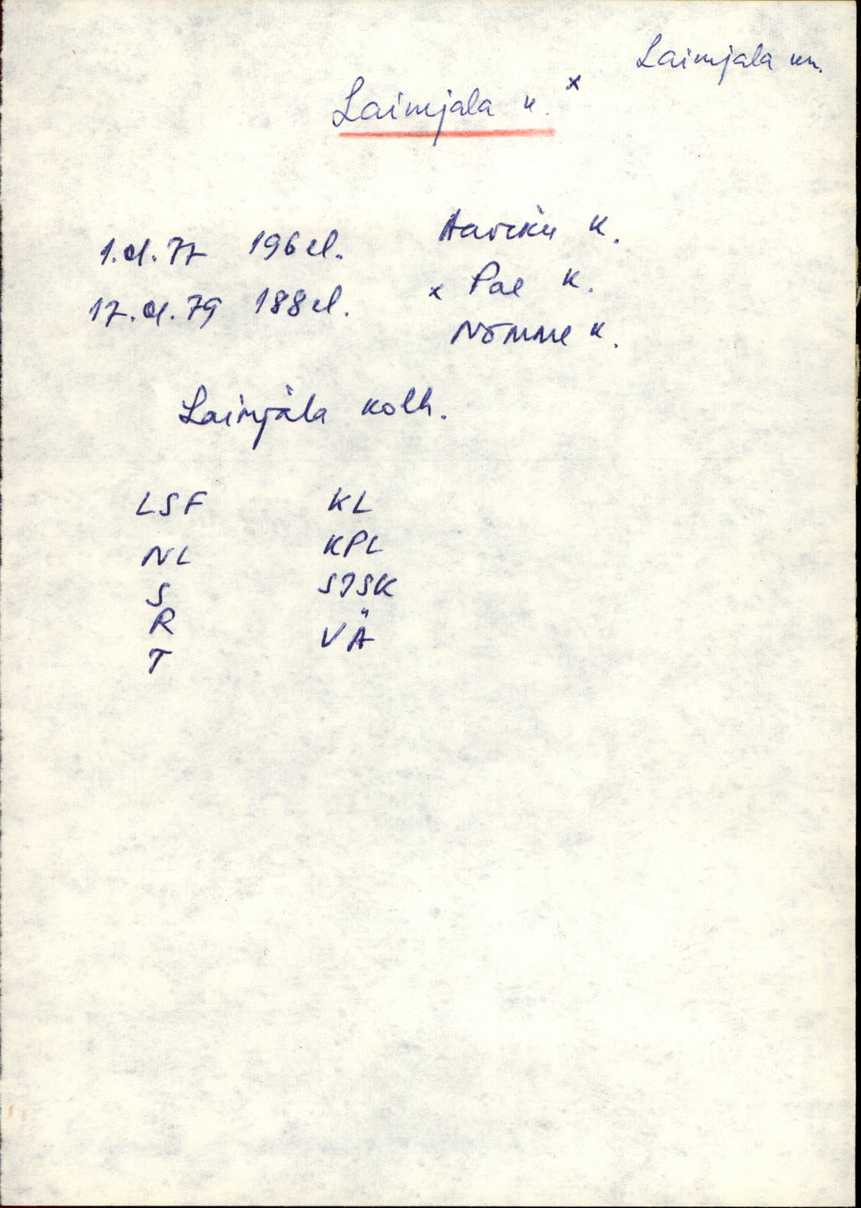 Laimjala kn.
Laimjala k. x
1.01.77 196 el.
17.01.79 188 el.
Haviku k.
x Pae k.
Nõmme k.
Laimjala kolh.
LSF KL
NL KPL
S SJSK
R VÄ
T